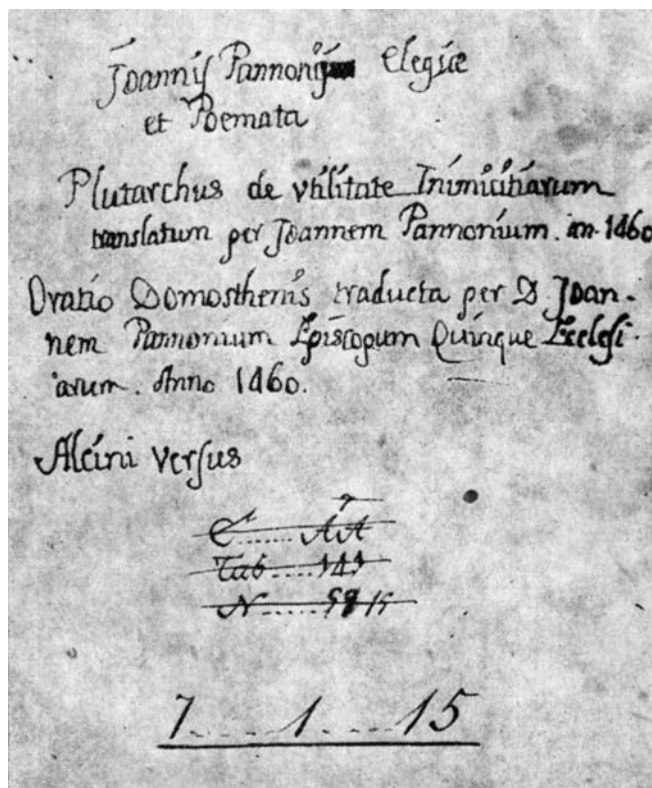 Joannis Pannonij Elegiæ
et Poemata
Plutarchus de vtilitate Inimicitiarum
translatum per Joannem Pannonium. an 1460
Oratio Domosthenis traducta per D. Joan-
nem Pannonium Episcopum Quinque Ecclesi-
arum. Anno 1460.
Alcini versus
Tab....
N......
7....1....15